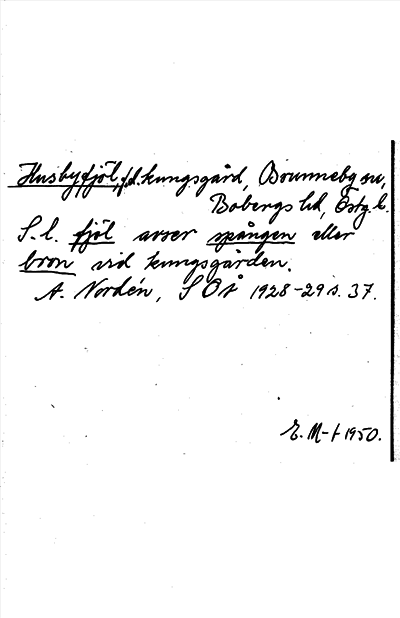 Husbyfjöl, f.d. kungsgård, Brunneby sn,
Bobergs hd, Östg. l.
S.l. fjöl avser spången eller
bron vid kungsgården.
A. Nordén, SOÅ 1928-29 s. 37.
E. M-t 1950.